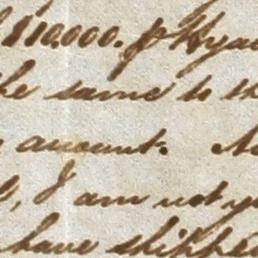 $110.000. p Hya
the same to th
account.
I am not y
have shipped